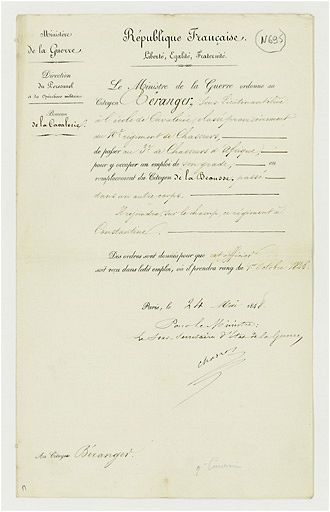 Ministère
de la Guerre.
Direction
du Personnel
et des Opérations militaires
Bureau
de la Cavalerie.
République Française.
Liberté, Egalité, Fraternité.
N695
Le Ministre de la Guerre ordonne au
Citoyen Béranger, Sous-Lieutenant élève
à l'école de Cavalerie, classé provisoirement
au 10e régiment de Chasseurs,
de passer au 3e de Chasseurs d'Afrique,
pour y occuper un emploi de son grade, en
remplacement du Citoyen de la Beausse, passé
dans un autre corps.
Il rejoindra, sur le champ, ce régiment à
Constantine.
Des ordres sont donnés pour que cet officier
soit reçu dans ledit emploi, où il prendra rang du 1er Octobre 1846.
Paris, le 24 Mai 1848
Pour le Ministre:
Le Sous-Secrétaire d'Etat de la Guerre,
Charras
Au Citoyen Béranger.